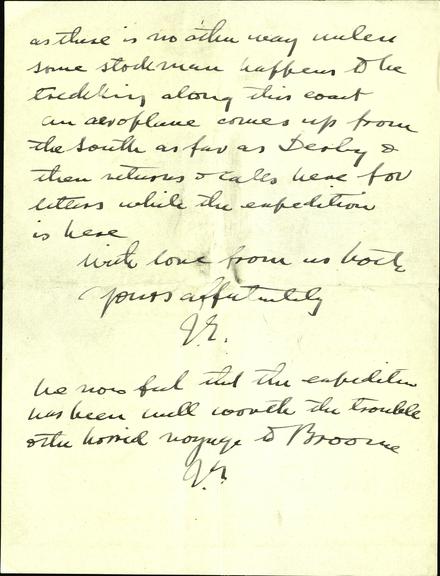 as there is no other way unless
some stockman happens to be
treckking along this coast
an aeroplane comes up from
the South as far as Derby &
then returns & calls here for
letters while the expedition
is here
With love from us both
yours affectionately
J.E.
We now feel that the expedition
has been well worth the trouble
& the horrid voyage to Broome